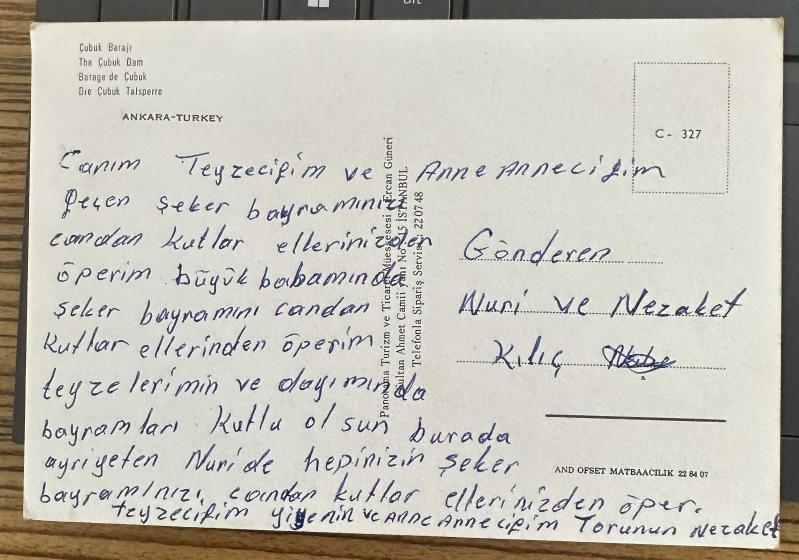 Çubuk Barajı
The Çubuk Dam
Barage de Çubuk
Die Çubuk Talsperre
ANKARA-TURKEY
C- 327
Canım Teyzeciğim ve Anne Anneciğim
geçen şeker bayramınızı
candan kutlar ellerinizden
öperim büyük babamında
şeker bayramını candan
kutlar ellerinden öperim
teyzelerimin ve dayımında
bayramları kutlu olsun burada
ayriyeten Nuride hepinizin şeker
bayramınızı candan kutlar ellerinizden öper.
teyzeciğim yiğenin ve Anne Anneciğim Torunun Nezaket
Panorama Turizm ve Ticaret Müessesesi Ercan Güneri
Sultan Ahmet Camii yanı No. 15 İSTANBUL
Telefonla Sipariş Servisi: 22 07 48
Gönderen
Nuri ve Nezaket
Kılıç
AND OFSET MATBAACILIK 22 84 07